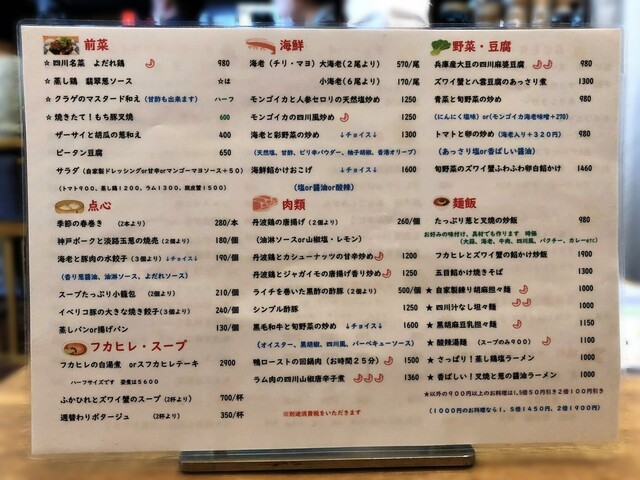 前菜
☆ 四川名菜 よだれ鶏 980
☆ 蒸し鶏 翡翠葱ソース ☆は
☆ クラゲのマスタード和え (甘酢も出来ます) ハーフ
☆ 焼きたて！もち豚叉焼 600
ザーサイと胡瓜の葱和え 400
ピータン豆腐 650
サラダ (自家製ドレッシングor甘辛orマンゴーマヨソース+50)
(トマト900、蒸し鶏1200、ラム1300、間皮蟹1500)
点心
季節の春巻き (2本より) 280/本
神戸ポークと淡路玉葱の焼売 (2個より) 180/個
海老と豚肉の水餃子 (3個より) ↓チョイス↓ 190/個
(香り葱醤油、油淋ソース、よだれソース)
スープたっぷり小籠包 (2個より) 210/個
イベリコ豚の大きな焼き餃子 (3個より) 240/個
蒸しパンor揚げパン 130/個
フカヒレ・スープ
フカヒレの白湯煮 orスフカヒレテーキ 2900
ハーフサイズです 姿煮は5600
ふかひれとズワイ蟹のスープ (2杯より) 700/杯
週替わりポタージュ (2杯より) 350/杯
海鮮
海老 (チリ・マヨ) 大海老 (2尾より) 570/尾
小海老 (6尾より) 170/尾
モンゴイカと人参セロリの天然塩炒め 1250
モンゴイカの四川風炒め 1250
海老と彩野菜の炒め ↓チョイス↓ 1300
(天然塩、甘酢、ピリ辛パウダー、柚子胡椒、香港オリーブ)
海鮮餡かけおこげ ↓チョイス↓ 1600
(塩or醤油or酸辣)
肉類
丹波鶏の唐揚げ (2個より) 260/個
(油淋ソースor山椒塩・レモン)
丹波鶏とカシューナッツの甘辛炒め 1200
丹波鶏とジャガイモの唐揚げ香り炒め 1250
ライチを巻いた黒酢の酢豚 (2個より) 500/個
シンプル酢豚 1250
黒毛和牛と旬野菜の炒め ↓チョイス↓ 1600
(オイスター、黒胡椒、四川風、バーベキューソース)
鴨ローストの回鍋肉 (お時間25分) 1500
ラム肉の四川山椒唐辛子煮 1360
※別途消費税をいただきます
野菜・豆腐
兵庫産大豆の四川麻婆豆腐 980
ズワイ蟹と八雲豆腐のあっさり煮 1300
青菜と旬野菜の炒め 980
(にんにく塩味) or(モンゴイカ海老味噌+270)
トマトと卵の炒め (海老入り+320円) 980
(あっさり塩or香ばしい醤油)
旬野菜のズワイ蟹ふわふわ卵白餡かけ 1460
麺飯
たっぷり葱と叉焼の炒飯 980
お好みの味付け、具材でも作ります 時価
(大蒜、海老、牛肉、四川風、パクチー、カレーetc)
フカヒレとズワイ蟹の餡かけ炒飯 1900
五目餡かけ焼きそば 1300
★ 自家製練り胡麻担々麺 1000
★ 四川汁なし担々麺 1000
★ 黒胡麻豆乳担々麺 1150
★ 酸辣湯麺 (スープのみ900) 1100
★ さっぱり！蒸し鶏塩ラーメン 1000
★ 香ばしい！叉焼と葱の醤油ラーメン 1000
★以外の900円以上のお料理は1,5倍50円引き2倍100円引き
(1000円のお料理なら1,5倍1450円、2倍1900円)